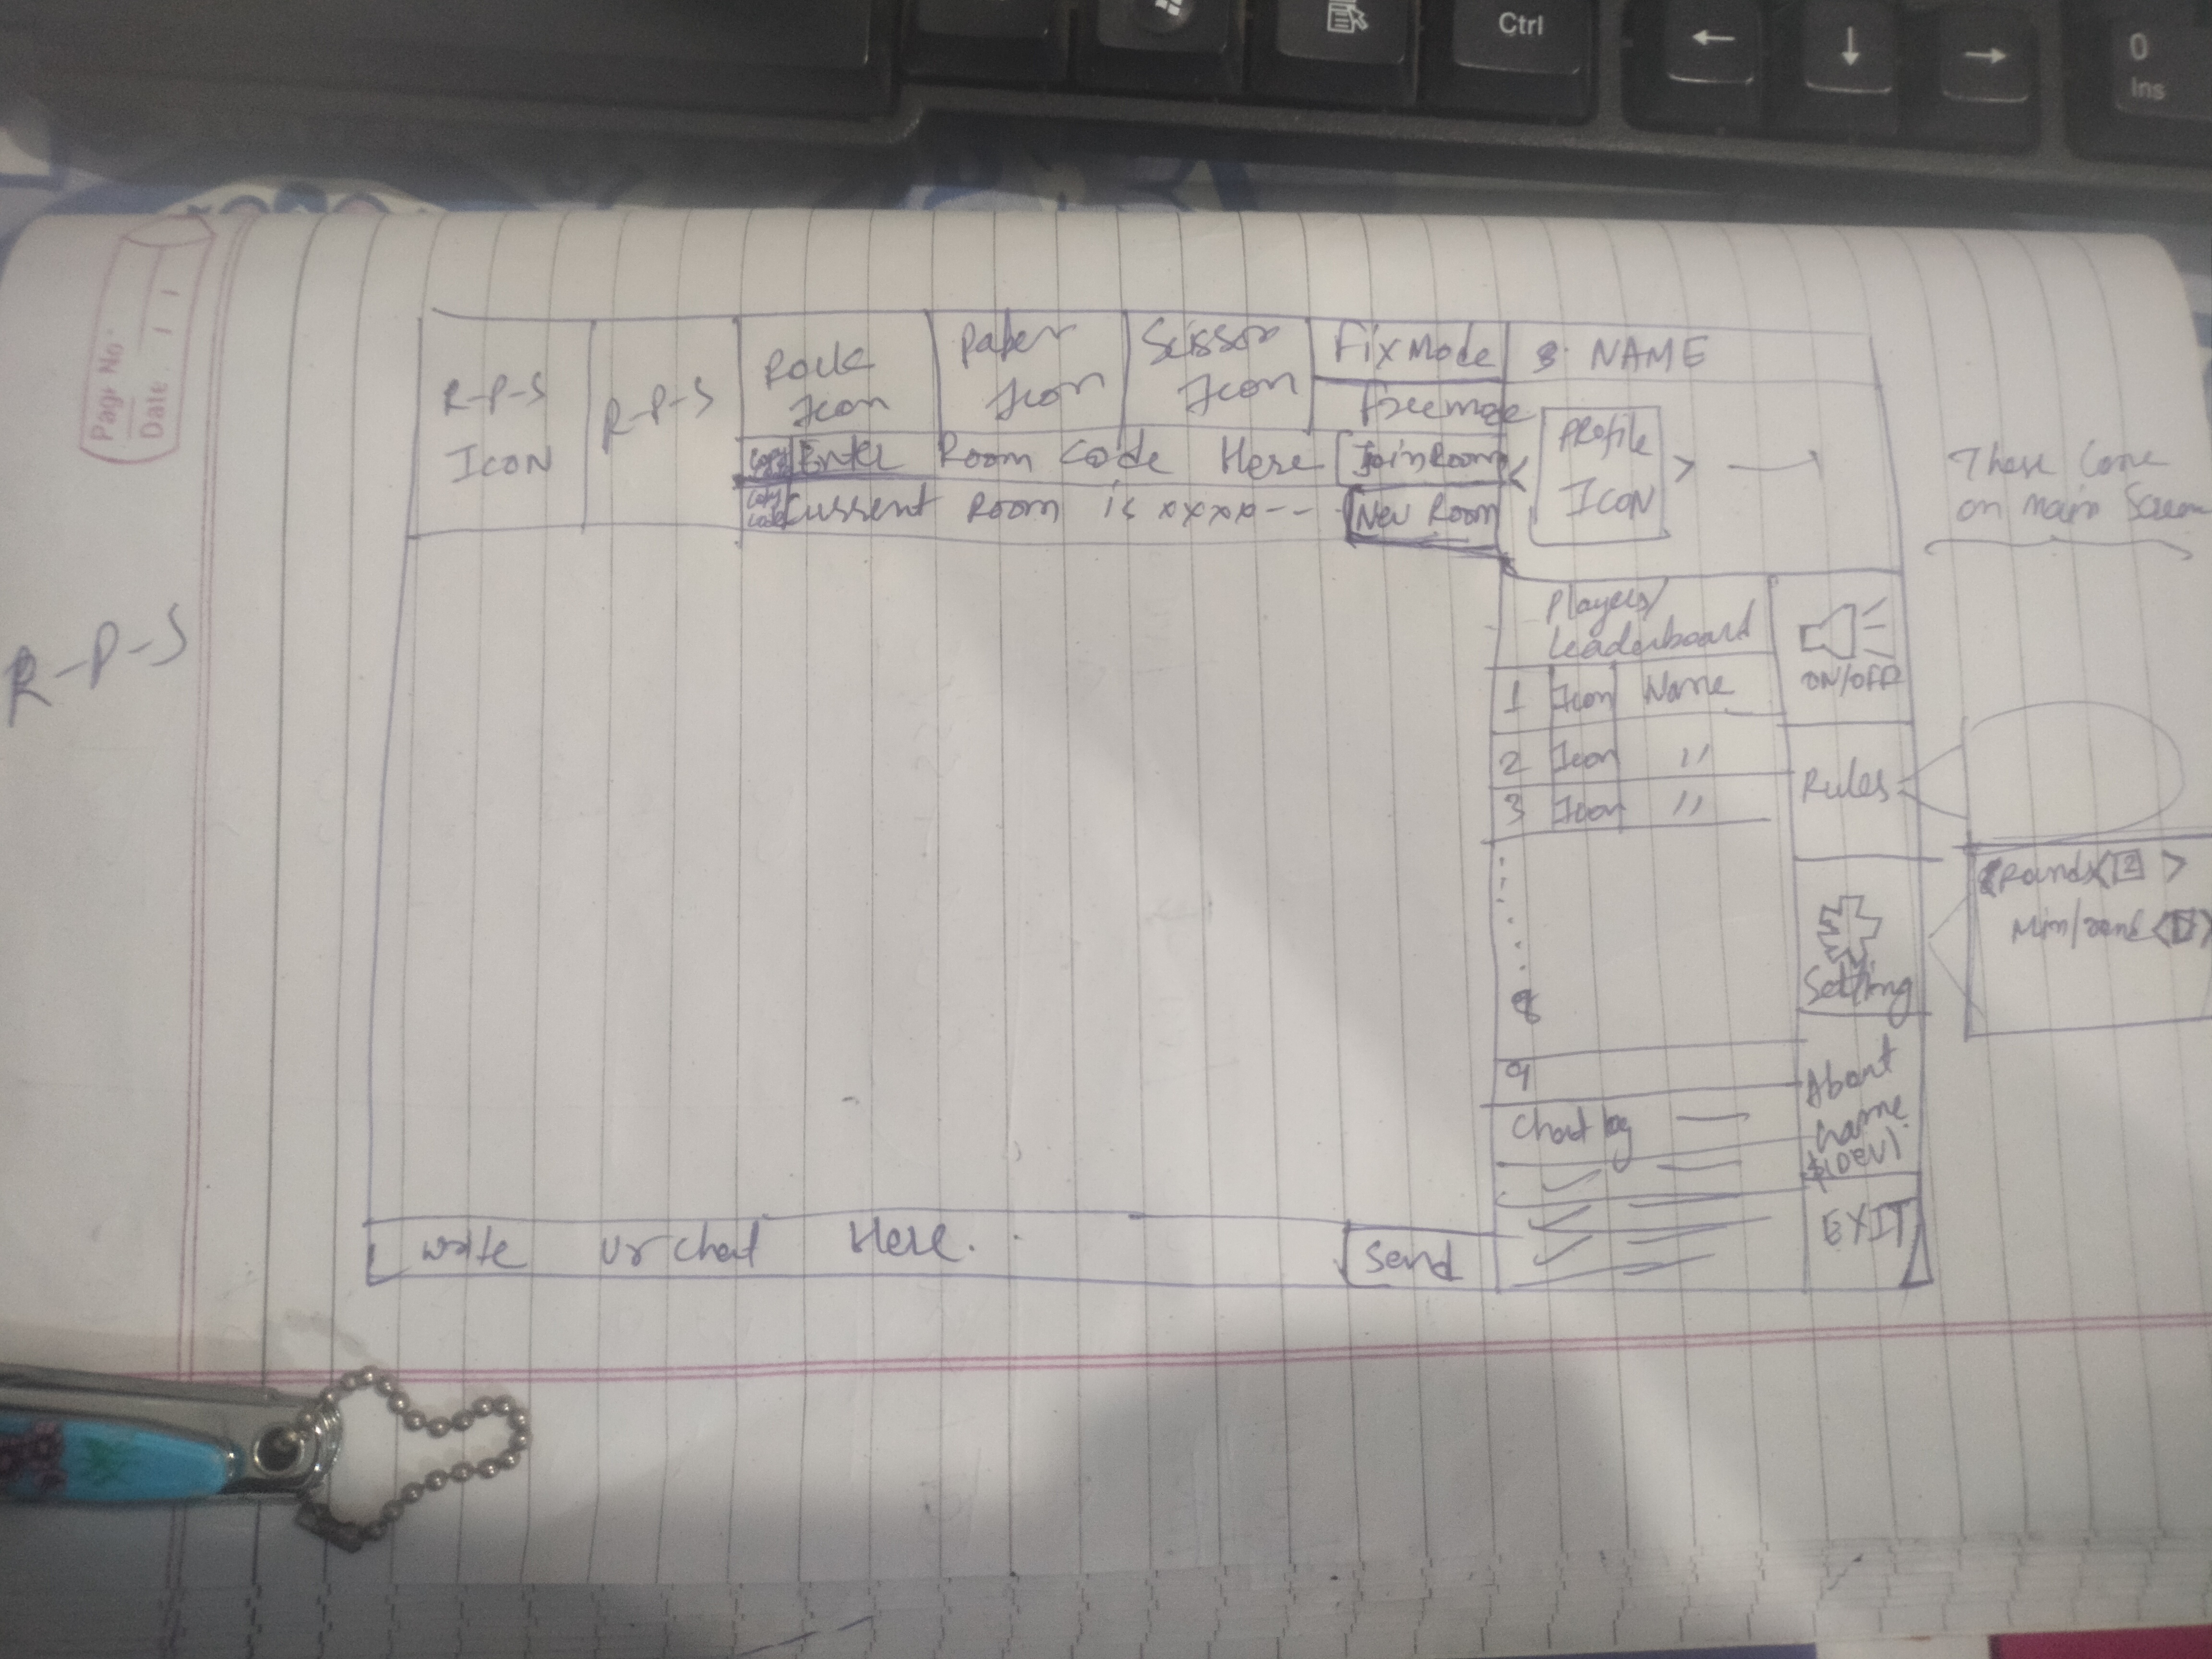 Ctrl
←
↓
→
0
Ins
Page No.
Date
R-P-S
R-P-S
ICON
R-P-S
Rock
Icon
Paper
Icon
Scissor
Icon
Fix Mode
Free mode
NAME
Copy
Enter Room Code Here
Join Room
Copy
Code
Current Room is xxxx--
New Room
<
PROfile
ICON
>
These Come
on main Screen
Players/
Leaderboard
ON/OFF
1 Icon Name
2 Icon "
3 Icon "
8
9
Rules
Rounds < 2 >
Setting
About
Game
(DEV)
Chat log
EXIT
Write Ur chat Here.
Send